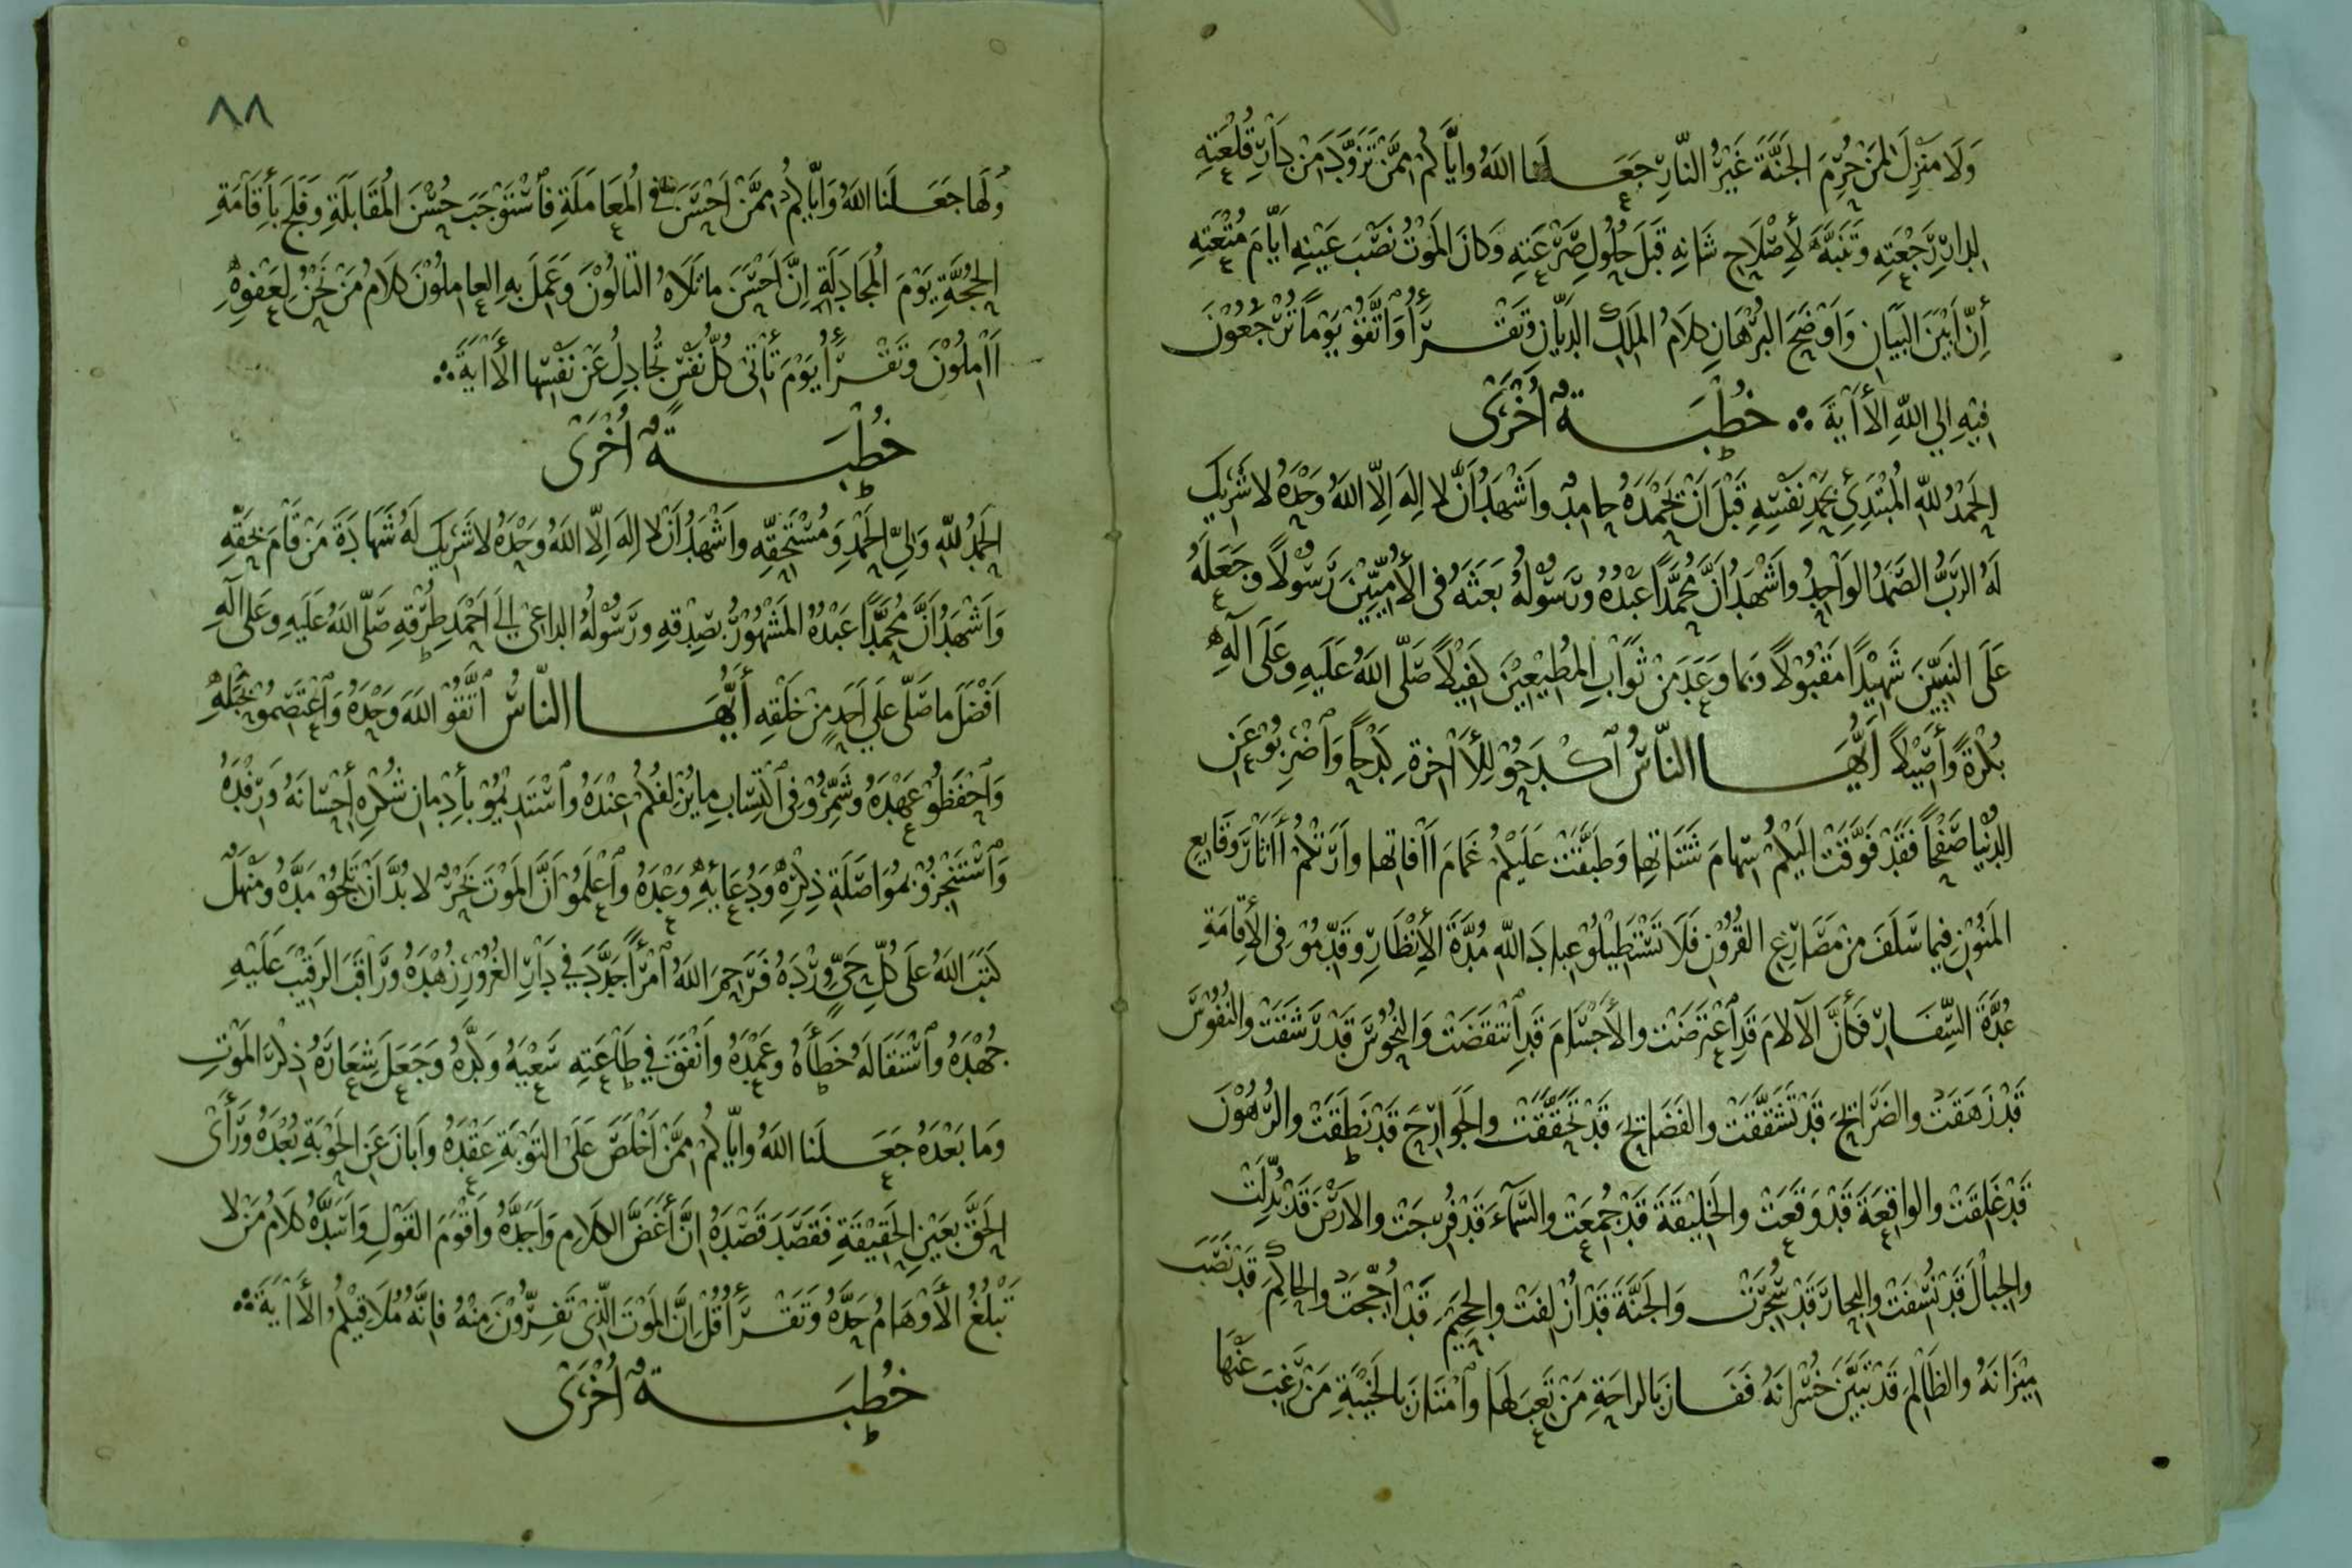 وَلَا مَنْزِلَ لِمَنْ حُرِمَ الجَنَّةَ غَيْرُ النَّارِ جَعَلَنا اللهُ وايَّاكُمْ مِمَّنْ تَزَوَّدَ مِنْ دَارِ قُلْعَتِهِ
لِدارِ رَجْعَتِهِ وَتَنَبَّهَ لأِصْلَاحِ شَانِهِ قَبْلَ حُلُولِ صَرْعَتِهِ وَكَانَ المَوْتُ نَصْبَ عَيْنِهِ اَيَّامَ مُتْعَتِهِ
أِنَّ اَبْيَنَ البَيَانِ وَاَوْضَحَ البُرْهَانِ كَلَامُ المَلِكِ الدَيَّانِ وَتَقْرَأُ وَاتَّقُوْ يَوْماً تُرْجَعُوْنَ
فِيْهِ اِلي اللهِ الأَاٰيَةَ ∴ خُطْبَةٌ اُخْرَىٰ
الحَمْدُ للهِ المُبْتَدِئِ بِحَمْدِ نَفْسِهِ قَبْلَ اَنْ يَحْمَدَهُ حامِدٌ واَشْهَدُ اَنْ لا اِلهَ اِلّا اللهُ وَحْدَهُ لا شَرِيكَ
لَهُ الرَبُّ الصَّمَدُ الوَاحِدُ واَشْهَدُ اَنَّ مُحَمَّداً عَبْدُهُ وَرَسُوْلُهُ بَعَثَهُ فى الأُمِيِّيْنَ رَسُوْلاً وَجَعَلَهُ
عَلَى النَبِيِّيْنَ شَهِيْدًا مَقْبُوْلاً وَبِما وَعَدَ مِنْ ثَوَابِ المُطِيْعِيْنَ كَفِيْلاً صَلّى اللهُ عَلَيهِ وَعَلَى آلِهِ
بُكْرَةً وَأَصِيْلاً أَيُّهَا النَّاسُ اكْدَحُوْ لِلأَاْخِرَةِ كَدْحًا وَاضْرِبُوْ عَنِ
الدُنْيَا صَفْحاً فَقَدْ فَوَّقَتْ اِلَيْكُمْ سِهَامَ شَتَاتِها وَطَبَّقَتْ عَلَيْكُمْ غَمَامَ اٰفَاتِها واَرَتْكُمْ اٰثَارَ وَقَايِعِ
المَنُوْنِ فِيما سَلَفَ مِنْ مَصَارِعِ القُرُوْنِ فَلَا تَسْتَطِيْلُوْ عِبادَ اللهِ مُدَّةَ الأِنْظَارِ وَقَدِّمُوْ فى الأِقَامَةِ
عُدَّةَ السَّفَارِ فَكَأَنَّ الآلامَ قَدِ اعْتَرَضَتْ والأَجْسَامَ قَدِ انْتَقَضَتْ والنُحُوْسَ قَدْ رَشَقَتْ والنُفُوْسَ
قَدْ زَهَقَتْ والضَرَائِحَ قَدْ تَشَقَّقَتْ والفَضَائِحَ قَدْ تَحَقَّقَتْ والجَوَارِحَ قَدْ نَطَقَتْ والرُهُوْنَ
قَدْ غَلِقَتْ والوَاقِعَةَ قَدْ وَقَعَتْ والخَلِيْقَةَ قَدْ جُمِعَتْ والسَّمآءَ قَدْ فُرِجَتْ والارْضَ قَدْ بُدِّلَتْ
والجِبالَ قَدْ نُسِفَتْ والبِحَارَ قَدْ سُجِّرَتْ وَالجَنَّةَ قَدْ اُزْلِفَتْ والجَحِيْمَ قَدْ اُجِّجَتْ والحَاكِمَ قَدْ نَصَبَ
مِيْزَانَهُ والظَالِمَ قَدْ تَبَيَّنَ خُسْرَانَهُ فَفَازَ بالراحَةِ مَنْ تَعِبَ لَها وَامْتَازَ بالخَيْبَةِ مَنْ رَغِبَ عَنْها
٨٨
وَلَها جَعَلَنا اللهُ وَاِيّاكُمْ مِمَّنْ اَحْسَنَ فِي المُعَامَلَةِ فَاسْتَوْجَبَ حُسْنَ المُقَابَلَةِ وَفَلَجَ بأِقَامَةِ
الحُجَّةِ يَوْمَ المُجَادَلَةِ اِنَّ اَحْسَنَ ما تَلَاهُ التَالُوْنَ وَعَمِلَ بِهِ العامِلُوْنَ كَلَامُ مَنْ نَحْنُ لِعَفْوِهِ
اٰمِلُوْنَ وَتَقْرَأُ يَوْمَ تَأْتى كُلُّ نَفْسٍ تُجَادِلُ عَنْ نَفْسِها الأَاٰيَةَ ∴
خُطْبَةٌ اُخْرَىٰ
الحَمْدُ للهِ وَلِيِّ الحَمْدِ وَمُسْتَحِقِّهِ واَشْهَدُ اَنْ لا اِلهَ اِلّا اللهُ وَحْدَهُ لا شَرِيكَ لَهُ شَهادَةَ مَنْ قَامَ بِحَقِّهِ
وَاَشْهَدُ اَنَّ مُحَمَّداً عَبْدُهُ المَشْهُوْرُ بِصِدْقِهِ وَرَسُوْلُهُ الداعِىْ اِلى اَحْمَدِ طُرُقِهِ صَلّى اللهُ عَلَيهِ وَعَلى الِهِ
اَفْضَلَ ما صَلّى عَلي اَحَدٍ مِنْ خَلْقِهِ أَيُّهَا النّاسُ اتَّقُوْ اللهَ وَحْدَهُ وَاعْتَصِمُوْ بِحَبْلِهِ
وَاحْفَظُوْ عَهْدَهُ وَشَمِّرُوْ فِى اكْتِسَابِ ما يُزْلِفُكُمْ عِنْدَهُ وَاسْتَدِيْمُوْ بأِدْمَانِ شُكْرِهِ اِحْسَانَهُ وَرِفْدَهُ
وَاسْتَنْجِزُوْ بمُوَاصَلَةِ ذِكْرِهِ وَدُعَائِهِ وَعْدَهُ وَاعْلَمُوْ اَنَّ المَوْتَ بَحْرٌ لا بُدَّ اَنْ تَلِجُوْ مَدَّهُ وَمَنْهَلٌ
كَتَبَ اللهُ عَلَى كُلِّ حَيٍّ وِرْدَهُ فَرَحِمَ اللهُ امْرَأً جَدَّدَ في دَارِ الغُرُوْرِ زُهْدَهُ وَرَاقَبَ الرَقِيْبَ عَلَيْهِ
جُهْدَهُ وَاسْتَقَالَهُ خَطَأَهُ وَعَمْدَهُ واَنْفَقَ في طَاعَتِهِ سَعْيَهُ وَكَدَّهُ وَجَعَلَ شِعَارَهُ ذِكْرَ المَوْتِ
وَما بَعْدَهُ جَعَلَنا اللهُ واِيّاكُمْ مِمَّنْ اَخْلَصَ عَلَى التَوْبَةِ عَقْدَهُ واَبَانَ عَنِ الحَوْبَةِ بُعْدَهُ وَرَأَىٰ
الحَقَّ بِعَيْنِ الحَقِيْقَةِ فَقَصَدَ قَصْدَهُ اِنَّ أَغَضَّ الكَلَامِ وَاَجَدَّهُ واَقْوَمَ القَوْلِ وَاَسَدَّهُ كَلَامُ مَنْ لا
تَبْلُغُ الأَوْهَامُ حَدَّهُ وَتَقْرَأُ قُلْ اِنَّ المَوْتَ الَّذِىْ تَفِرُّوْنَ مِنْهُ فَاِنَّهُ مُلَاقِيْكُمْ الأَاٰيَةَ ∴
خُطْبَةٌ اُخْرَىٰ